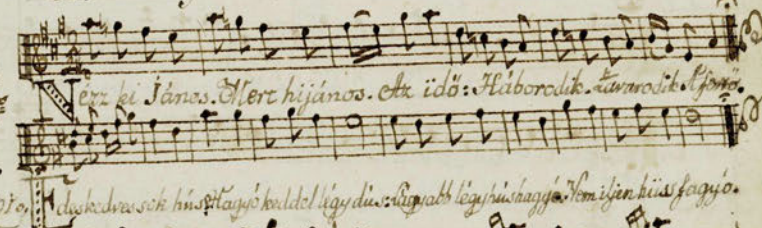 Nézz ki János. Mert hijános. Az idö: Háborodik. Zavarodik A forró.
Édes kedves sok hús: Hagyó keddel légy dús: légyhúshagyó. Nem iljen hüss fagyó.